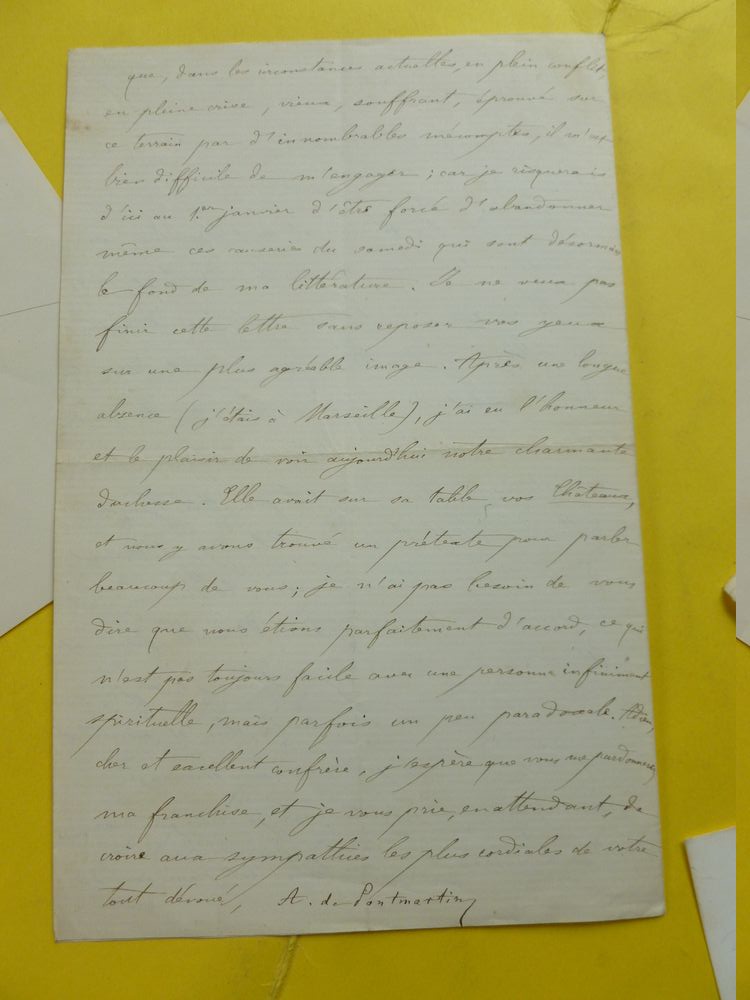 que, dans les circonstances actuelles, en plein conflit,
en pleine crise, vieux, souffrant, éprouvé sur
ce terrain par d'innombrables mécomptes, il m'est
bien difficile de m'engager ; car je risquerais
d'ici au 1.er janvier d'être forcé d'abandonner
même ces causeries du samedi qui sont désormais
le fond de ma littérature. Je ne veux pas
finir cette lettre sans reposer vos yeux
sur une plus agréable image. Après une longue
absence (j'étais à Marseille), j'ai eu l'honneur
et le plaisir de voir aujourd'hui notre charmante
duchesse. Elle avait sur sa table vos Châteaux,
et nous y avons trouvé un prétexte pour parler
beaucoup de vous ; je n'ai pas besoin de vous
dire que nous étions parfaitement d'accord, ce qui
n'est pas toujours facile avec une personne infiniment
spirituelle, mais parfois un peu paradoxale. Adieu,
cher et excellent confrère, j'espère que vous me pardonnerez
ma franchise, et je vous prie, en attendant, de
croire aux sympathies les plus cordiales de votre
tout dévoué, A. de Pontmartin